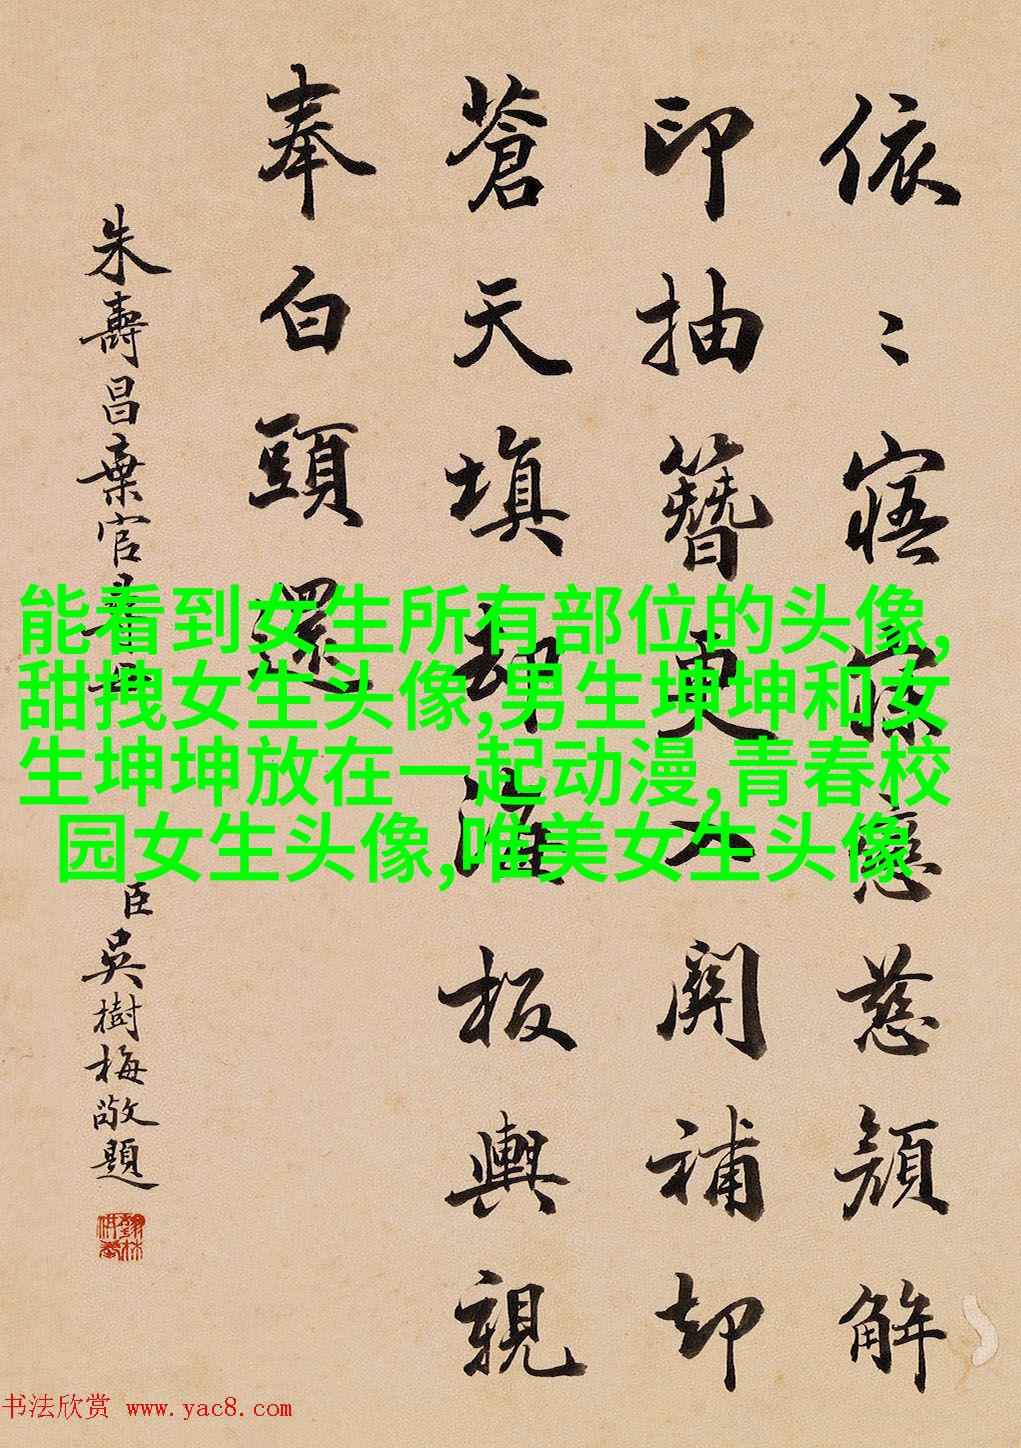 依〻寤寐戀慈顏解
印抽簪更入關補却
蒼天填却海板輿親
奉白頭還
朱壽昌棄官尋母
臣吳樹梅敬題
能看到女生所有部位的头像,
甜拽女生头像,男生坤坤和女
生坤坤放在一起动漫,青春校
园女生头像,唯美女生头像
书法欣赏 www.yac8.com